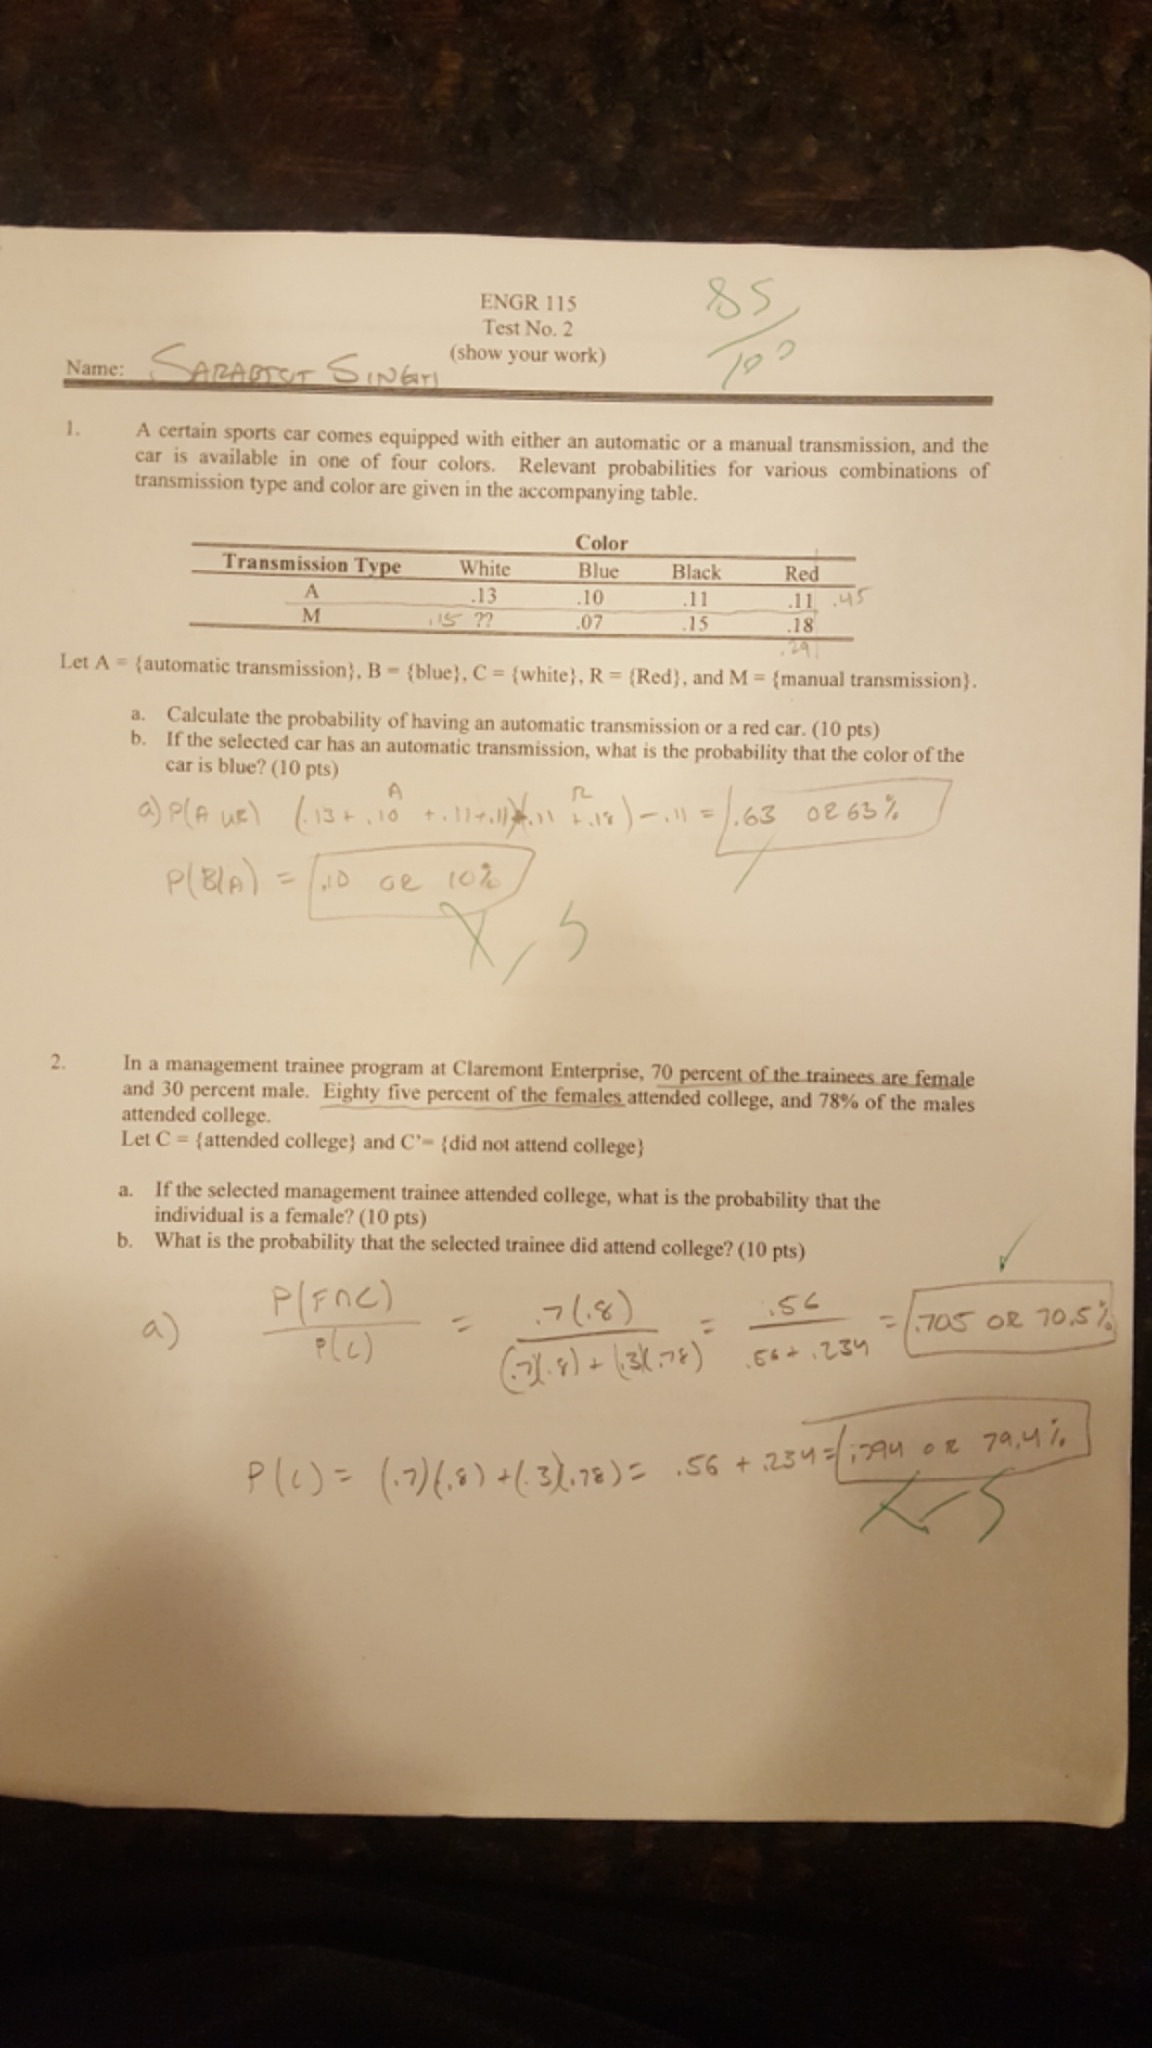 ENGR 115
Test No. 2
(show your work)
85/100
Name: SINGH
1. A certain sports car comes equipped with either an automatic or a manual transmission, and the
car is available in one of four colors. Relevant probabilities for various combinations of
transmission type and color are given in the accompanying table.
Color
Transmission Type White Blue Black Red
A .13 .10 .11 .11 .45
M .15 ?? .07 .15 .18
.29
Let A = {automatic transmission}, B = {blue}, C = {white}, R = {Red}, and M = {manual transmission}.
a. Calculate the probability of having an automatic transmission or a red car. (10 pts)
b. If the selected car has an automatic transmission, what is the probability that the color of the
car is blue? (10 pts)
A R
a) P(A UR) (.13+.10 +.11+.11)+(.11 +.18) -.11 = .63 OR 63%
P(B|A) = .10 OR 10%
X, 5
2. In a management trainee program at Claremont Enterprise, 70 percent of the trainees are female
and 30 percent male. Eighty five percent of the females attended college, and 78% of the males
attended college.
Let C = {attended college} and C'= {did not attend college}
a. If the selected management trainee attended college, what is the probability that the
individual is a female? (10 pts)
b. What is the probability that the selected trainee did attend college? (10 pts)
a) P(F∩C)/P(C) = .7(.8)/(.7)(.8)+(.3)(.78) = .56/.56+.234 = .705 OR 70.5%
P(C) = (.7)(.8)+(.3)(.78) = .56 + .234 = .794 OR 79.4%
X-5